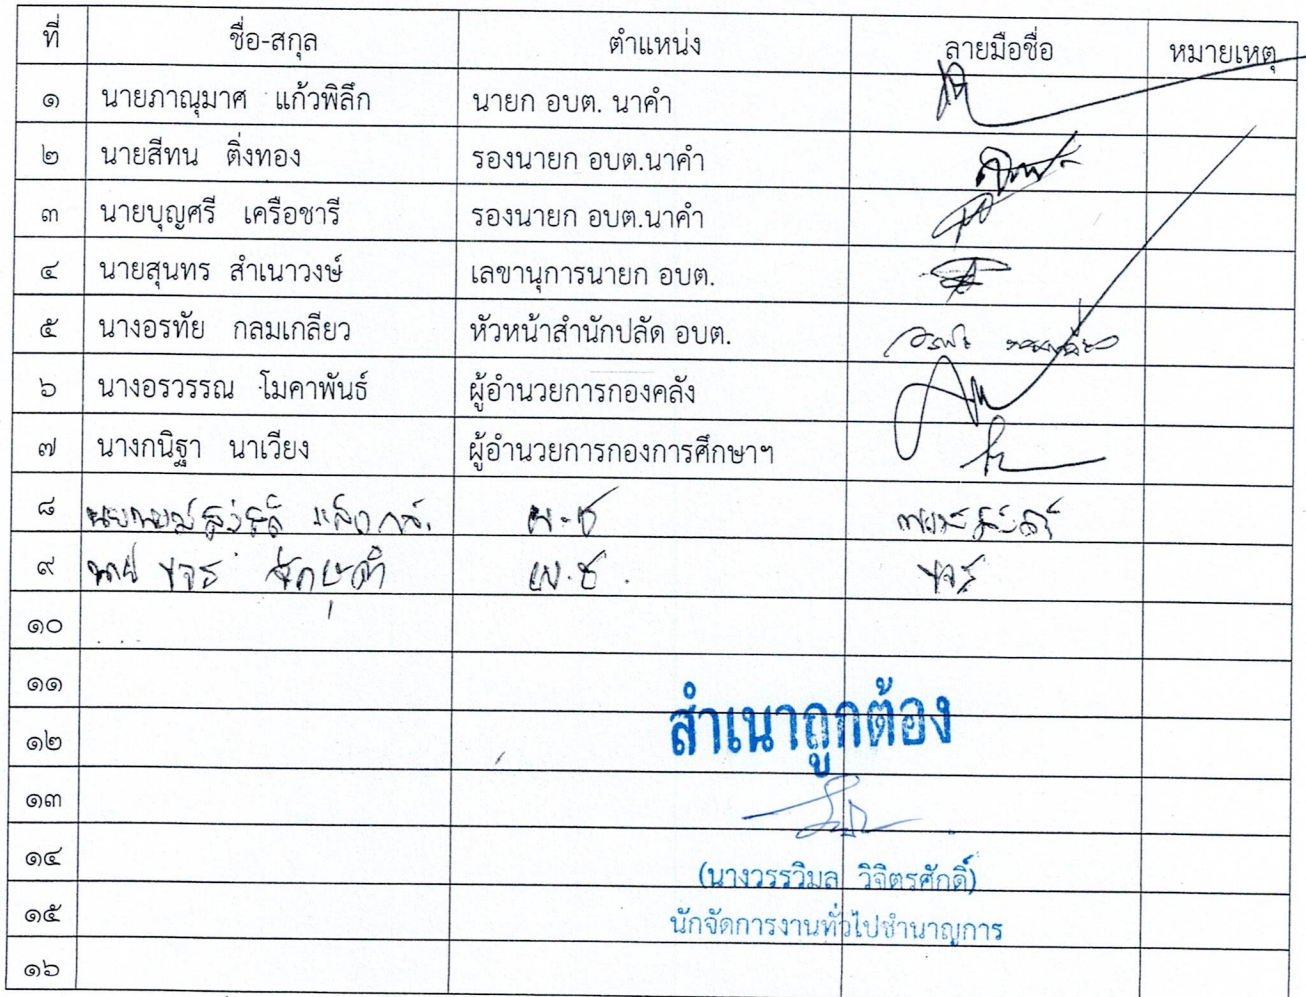 ที่ ชื่อ-สกุล ตำแหน่ง ลายมือชื่อ หมายเหตุ
๑ นายภาณุมาศ แก้วพิลึก นายก อบต. นาคำ
๒ นายสีทน ติ่งทอง รองนายก อบต.นาคำ
๓ นายบุญศรี เครือชารี รองนายก อบต.นาคำ
๔ นายสุนทร สำเนาวงษ์ เลขานุการนายก อบต.
๕ นางอรทัย กลมเกลียว หัวหน้าสำนักปลัด อบต.
๖ นางอรวรรณ โมคาพันธ์ ผู้อำนวยการกองคลัง
๗ นางกนิฐา นาเวียง ผู้อำนวยการกองการศึกษาฯ
๘
๙ นาย ขจร ผ.ช. ขจร
๑๐
๑๑
สำเนาถูกต้อง
๑๒
๑๓
๑๔ (นางวรรวิมล วิจิตรศักดิ์)
๑๕ นักจัดการงานทั่วไปชำนาญการ
๑๖